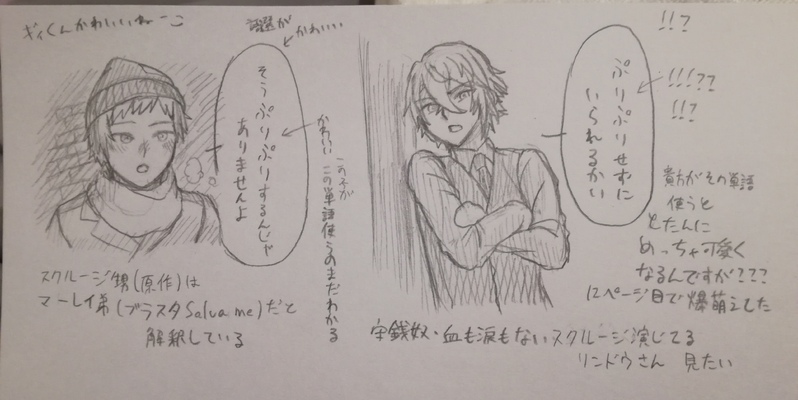 ギィくんかわいいねーこ
語選が
かわいい
そうぷりぷりするんじゃ
ありませんよ
かわいい
この子が
この単語使うのまだわかる
スクルージ甥(原作)は
マーレイ弟(ブラスタSalva me)だと
解釈している
ぷりぷりせずに
いられるかい
!!?
!!!??
!!?
貴方がその単語
使うと
とたんに
めっちゃ可愛く
なるんですが???
12ページ目で爆萌えした
守銭奴・血も涙もないスクルージ演じてる
リンドウさん 見たい